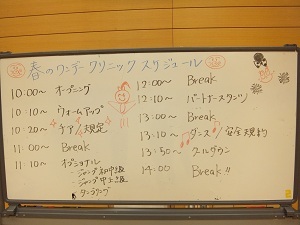 春のワンデークリニックスケジュール
10:00〜 オープニング
10:10〜 ウォームアップ
10:20〜 チア/規定
11:00〜 Break
11:10〜 オプショナル
・ジャンプ初中級
・ジャンプ中上級
・タンブリング
12:00〜 Break
12:10〜 パートナースタンツ
13:00〜 Break
13:10〜 ダンス/安全規約
13:50〜 クールダウン
14:00 Break!!